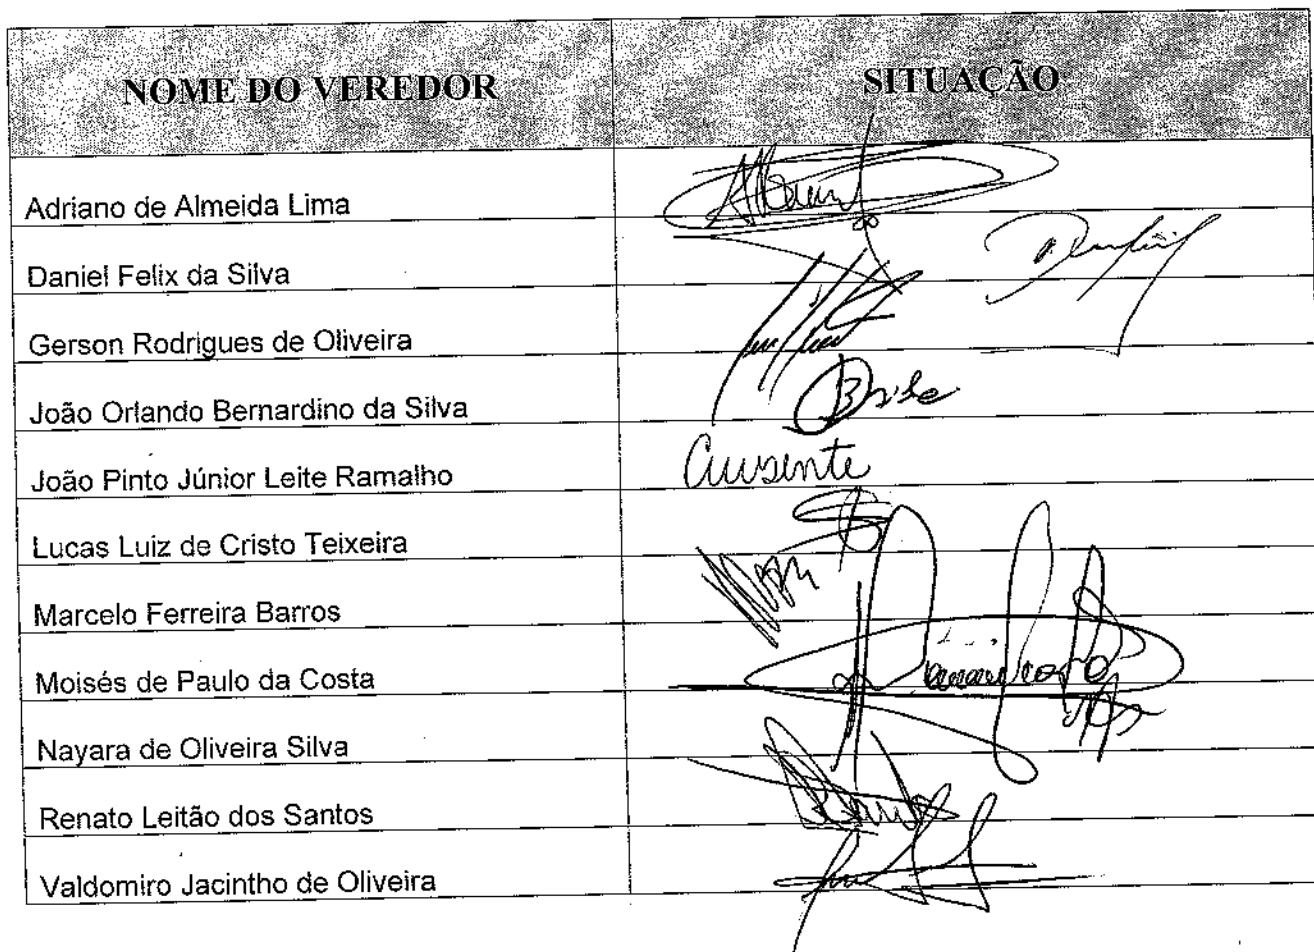 NOME DO VEREDOR SITUAÇÃO
Adriano de Almeida Lima
Daniel Felix da Silva
Gerson Rodrigues de Oliveira
João Orlando Bernardino da Silva
João Pinto Júnior Leite Ramalho Ausente
Lucas Luiz de Cristo Teixeira
Marcelo Ferreira Barros
Moisés de Paulo da Costa
Nayara de Oliveira Silva
Renato Leitão dos Santos
Valdomiro Jacintho de Oliveira